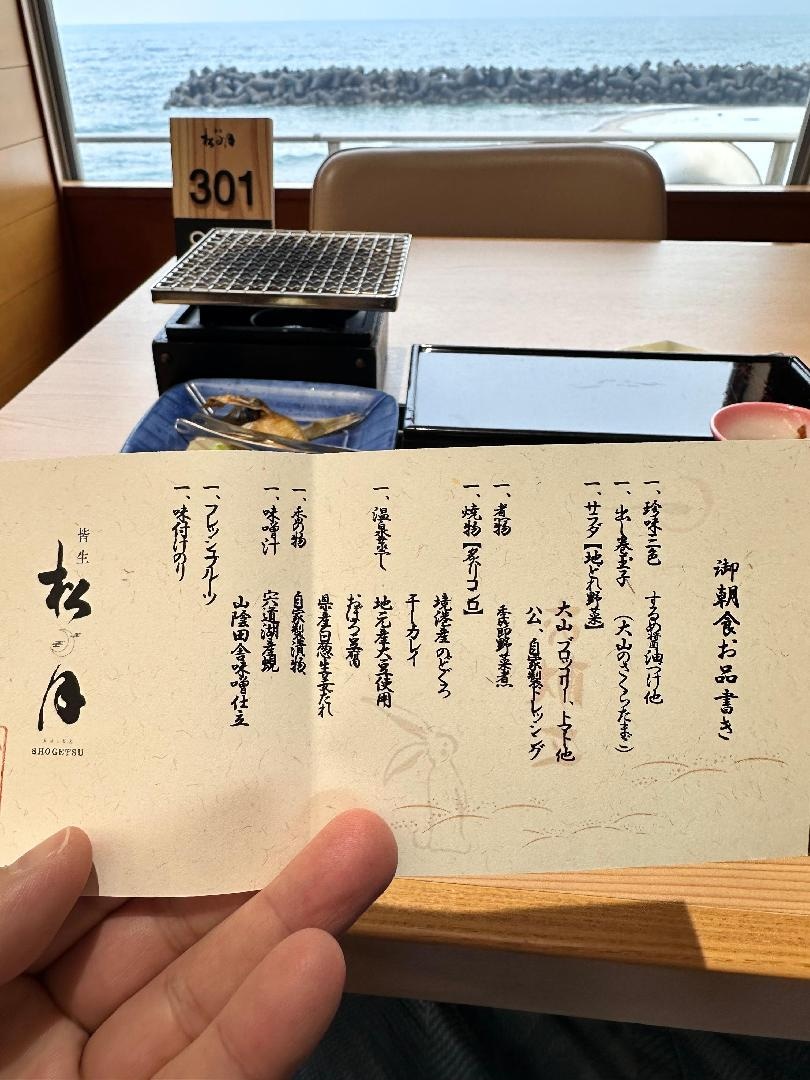 松月
301
御朝食お品書き
一、珍味三色 するめ醤油つけ他
一、出し巻玉子 (大山のさくらたまご)
一、サラダ【地どれ野菜】
大山ブロッコリー、トマト他
公、自家製ドレッシング
一、煮物 季節野菜煮
一、焼物【炙りコンロ】
境港産のどぐろ
干しカレイ
一、温泉蒸し 地元産大豆使用
おぼろ豆腐
県産白葱生姜だれ
一、香の物 自家製漬物
一、味噌汁 宍道湖産蜆
山陰田舎味噌仕立
一、フレッシュフルーツ
一、味付けのり
皆生
松月
SHOGETSU